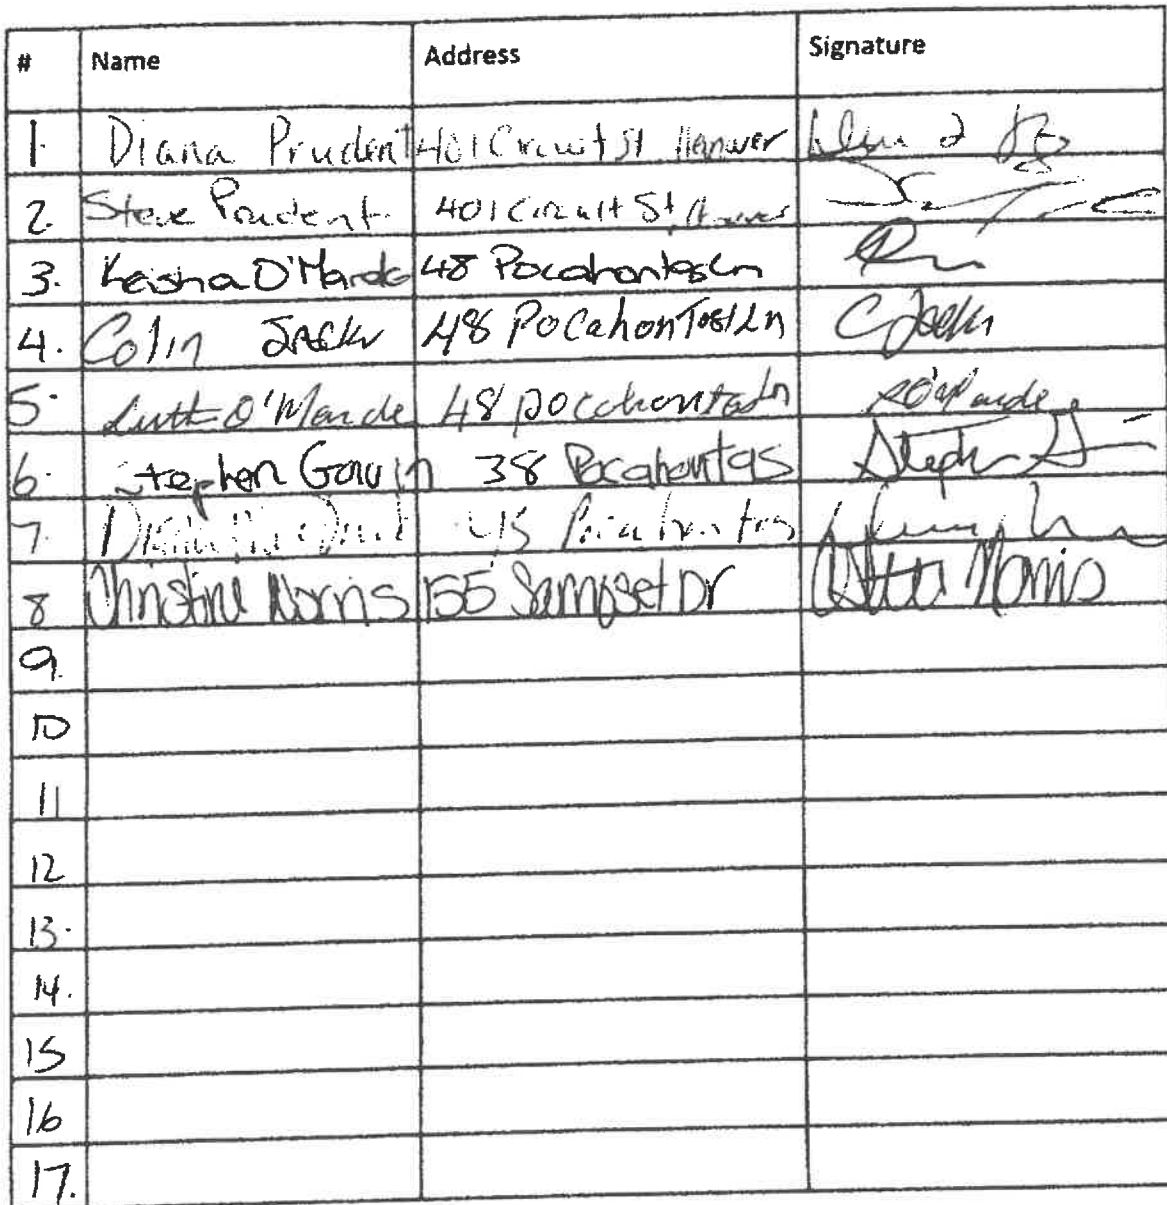 # Name Address Signature
1. Diana Prudent 401 Circuit St Hanover
2. Steve Prudent 401 Circuit St, Hanover
3. Keisha O'Marde 48 Pocahontas Ln
4. Colin Jack 48 Pocahontas Ln C Jack
5. O'Marde 48 pocahontas Ln O'Marde
6. Stephen 38 Pocahontas Stephen
7. 45 Pocahontas
8 Christine Norris 155 Samoset Dr Norris
9.
10
11
12
13.
14.
15
16
17.